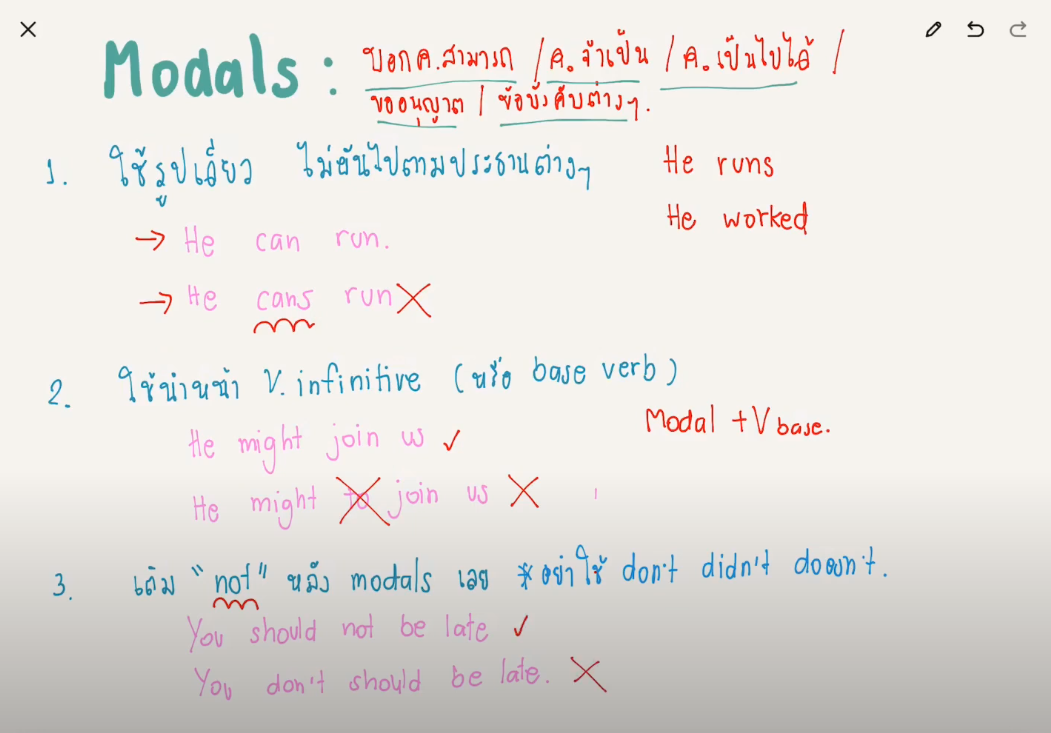 Modals : บอกค.สามารถ / ค.จำเป็น / ค.เป็นไปได้ /
ขออนุญาต / ข้อบังคับต่างๆ.
1. ใช้รูปเดียว ไม่ผันไปตามประธานต่างๆ
He runs
He worked
→ He can run.
→ He cans run
2. ใช้นำหน้า V. infinitive (หรือ base verb)
Modal + V base.
He might join us ✓
He might to join us
3. เติม "not" หลัง modals เลย *อย่าใช้ don't didn't doesn't.
You should not be late ✓
You don't should be late.